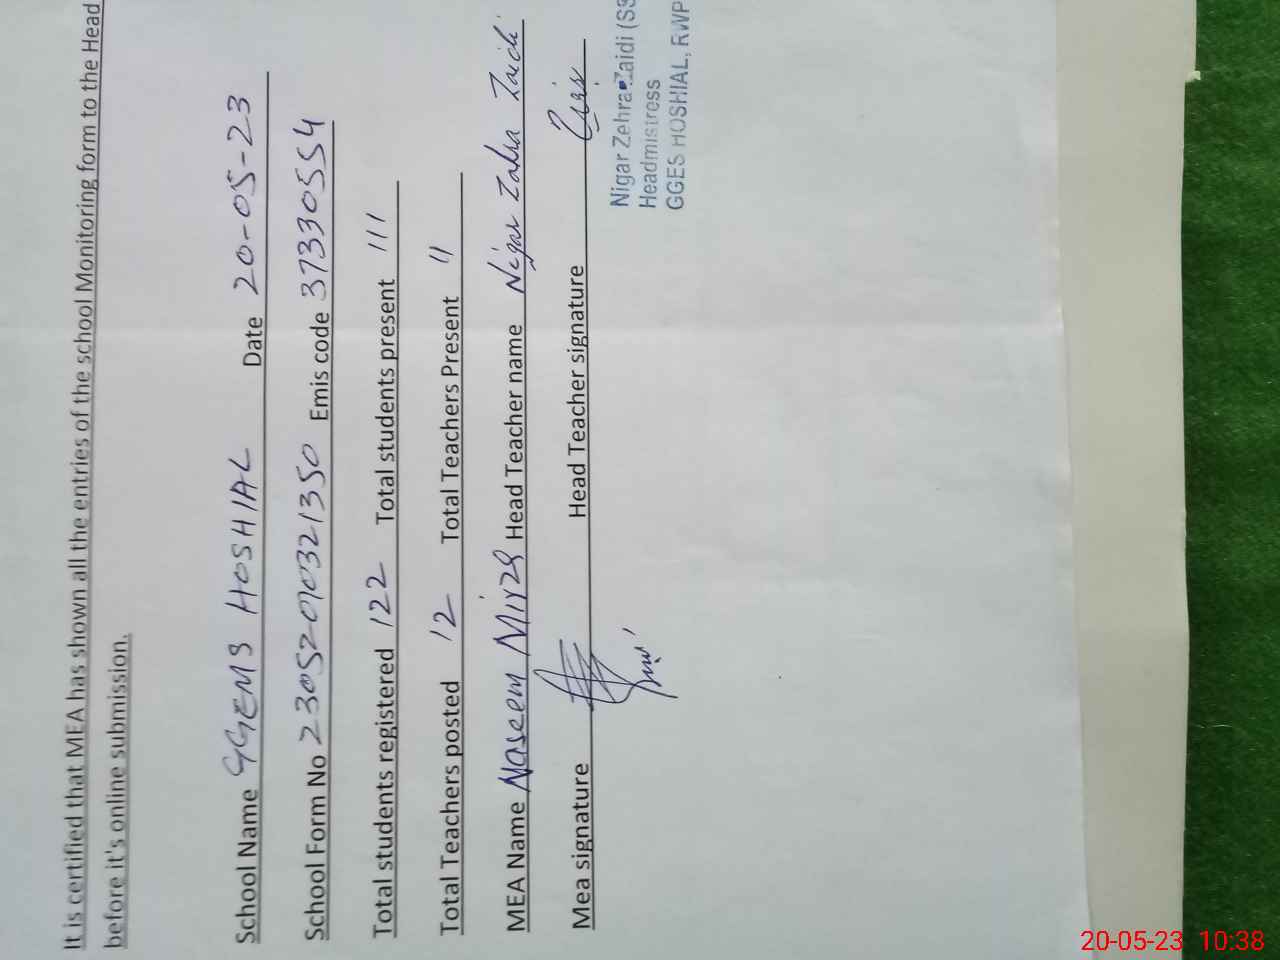 It is certified that MEA has shown all the entries of the school Monitoring form to the Head
before it's online submission.
School Name GGEMS HOSHIAL Date 20-05-23
School Form No 2305201321350 Emis code 37330554
Total students registered 122 Total students present 111
Total Teachers posted 12 Total Teachers Present 11
MEA Name Naseem Mirza Head Teacher name Nigar Zahra Zaidi
Mea signature Head Teacher signature
Nigar Zehra Zaidi (SS
Headmistress
GGES HOSHIAL, RWP
20-05-23 10:38